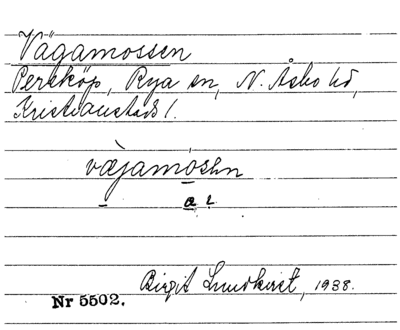 Vägamossen
Perstköp, Rya sn, N. Åsbo hd,
Kristianstads l.
væjamosen
a
Birgit Lundkvist, 1938.
Nr 5502.